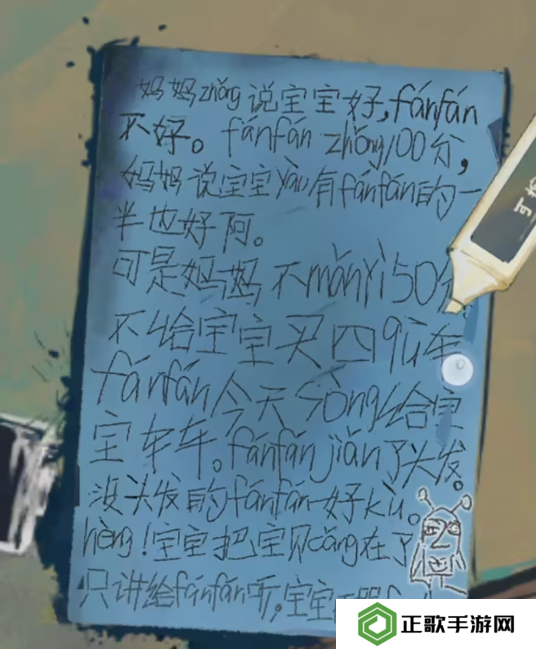 妈妈zhǒng说宝宝好,fánfán
不好。fánfán zhǒng100分,
妈妈说宝宝yào有fánfán的一
半也好阿。
可是妈妈不mǎnyì50分
不给宝宝买四qū车
fánfán今天sòng给宝
宝车车。fánfán jiǎn了头发。
没头发的fánfán好kù。
hèng!宝宝把宝贝cáng在了
只讲给fánfán听,宝宝
正歌手游网